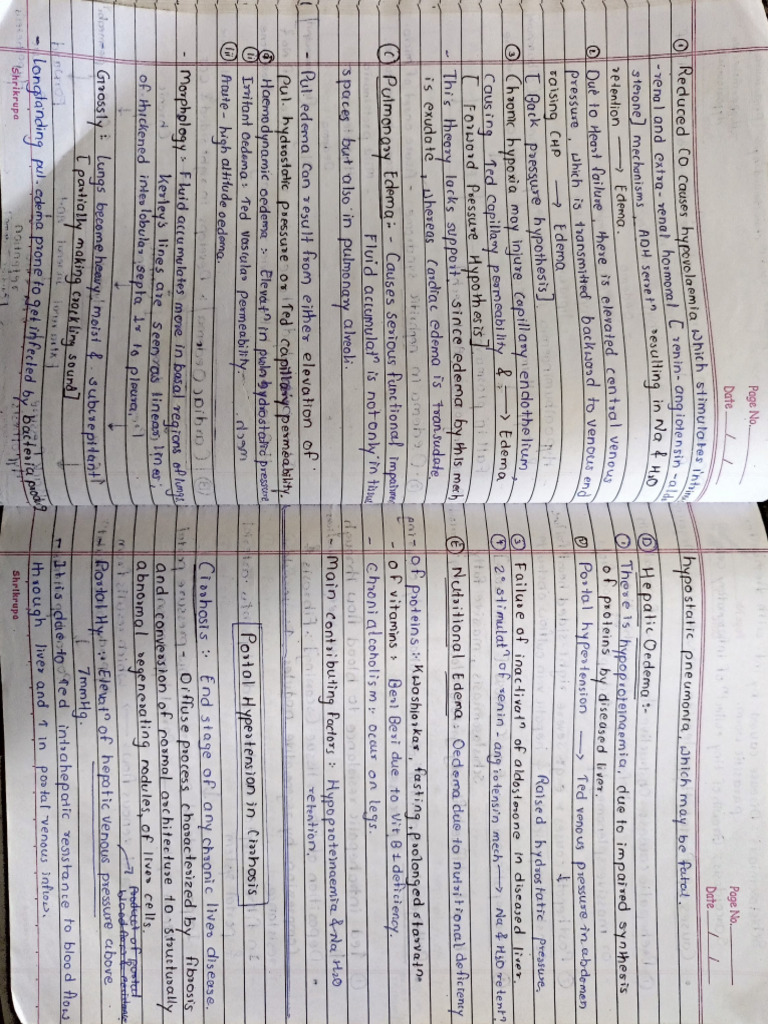 Page No.
Date / /
① Reduced CO causes hypovolaemia which stimulates intrin
-renal and extra-renal hormonal [renin-angiotensin-ald
sterone] mechanisms, ADH secretⁿ resulting in Na & H2O
retention → Edema.
② Due to Heart failure there is elevated central venous
pressure, which is transmitted backward to venous end
raising CHP → Edema
[Back pressure hypothesis]
③ Chronic hypoxia may injure capillary endothelium,
causing ↑ed capillary permeability & → Edema
[Forward Pressure Hypothesis]
- This theory lacks support, since edema by this mech
is exudate, whereas cardiac edema is transudate
Ⓒ Pulmonary Edema :- Causes serious functional impairme
Fluid accumulatⁿ is not only in tissue
spaces but also in pulmonary alveoli.
- Pul edema can result from either elevation of
pul. hydrostatic pressure or ↑ed capillary permeability.
① Haemodynamic oedema :- Elevatⁿ in pulm hydrostatic pressure
(ii) Irritant oedema : ↑ed vascular permeability.
(iii) Acute - high altitude oedema.
- Morphology :- Fluid accumulates more in basal regions of lungs
Kerley's lines are seen as linear lines
of thickened interlobular septa ⊥r to pleura.
Grossly : lungs become heavy, moist & subcrepitant
[partially making crackling sound]
- Longstanding pul. edema prone to get infected by bacteria
Shrikrupa
Page No.
Date / /
hypostatic pneumonia, which may be fatal.
Ⓓ Hepatic Oedema :-
① There is hypoproteinaemia, due to impaired synthesis
of proteins by diseased liver.
② Portal hypertension → ↑ed venous pressure in abdomen
↓
Raised hydrostatic pressure.
③ Failure of inactivatⁿ of aldosterone in diseased liver.
④ 2° stimulatⁿ of renin-angiotensin mech → Na & H2O retentⁿ
Ⓔ Nutritional Edema : Oedema due to nutritional deficiency
- of proteins : Kwashiorkar, fasting, prolonged starvatⁿ
- of vitamins : Beri Beri due to Vit B1 deficiency.
- chroni alcoholism : occur on legs.
- Main contributing factors : Hypoproteinaemia & Na H2O
retention.
Portal Hypertension in Cirrhosis
Cirrhosis :- End stage of any chronic liver disease.
- Diffuse process characterized by fibrosis
and conversion of normal architecture to structurally
abnormal regenerating nodules, of liver cells.
→ Product of portal
blood flow & resistance
- Portal Hy :- Elevatⁿ of hepatic venous pressure above
7mmHg.
- It is due to ↑ed intrahepatic resistance to blood flow
through liver and ↑ in portal venous inflow.
Shrikrupa